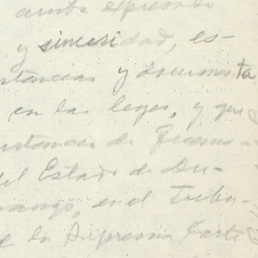 y sinceridad, es-
stancias y documenta
en las leyes, y que
nstancias de
del Estado de Du-
rango, en el Tribu-
e la Suprema Corte